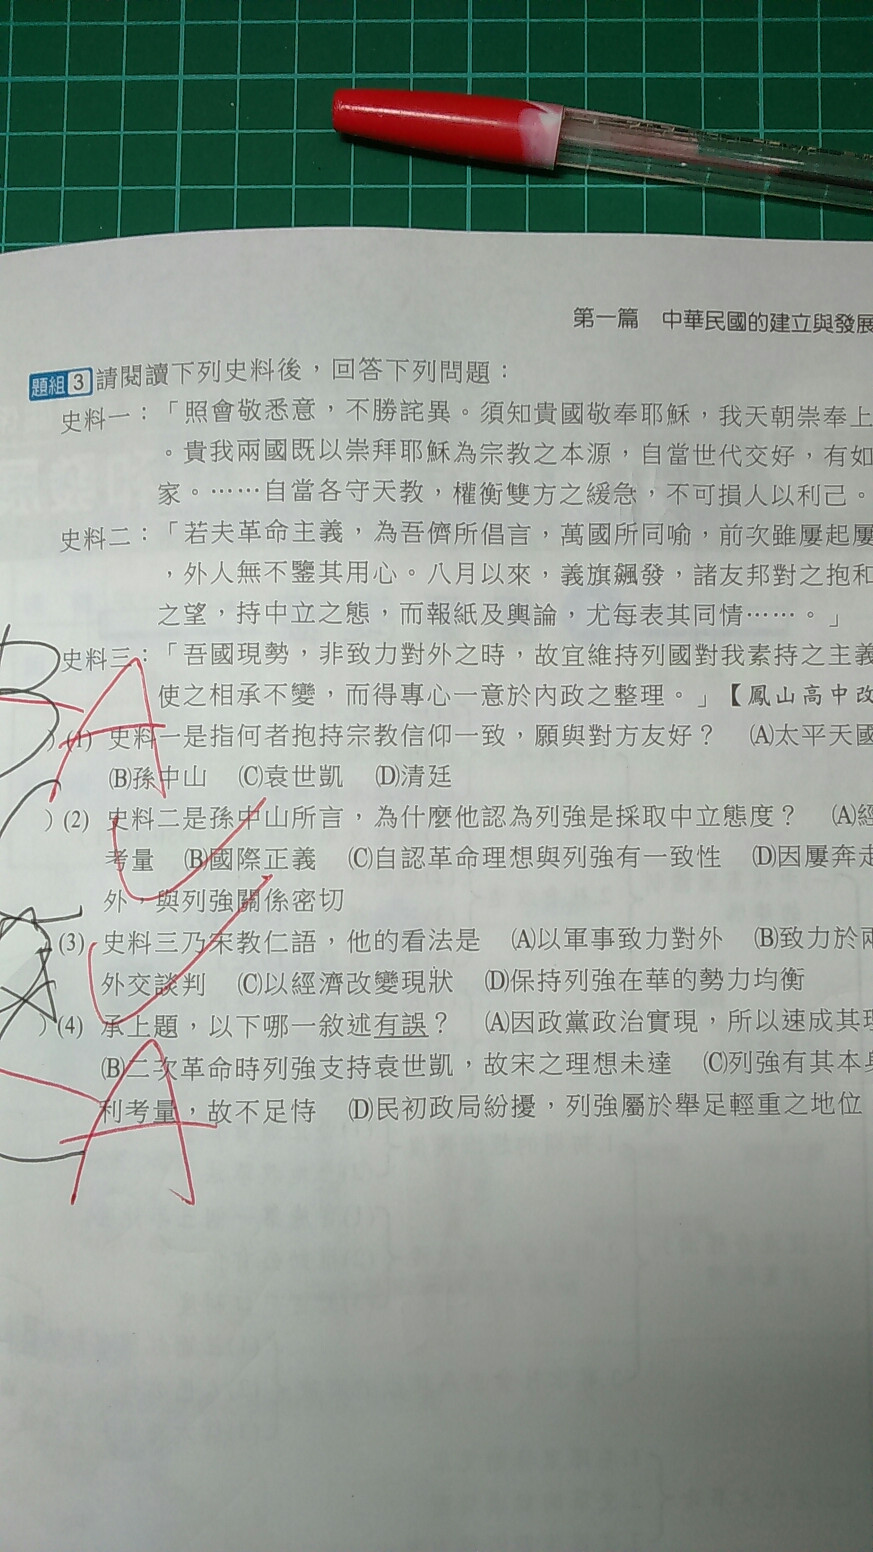 第一篇 中華民國的建立與發展
題組3 請閱讀下列史料後，回答下列問題：
史料一：「照會敬悉意，不勝詫異。須知貴國敬奉耶穌，我天朝崇奉上
。貴我兩國既以崇拜耶穌為宗教之本源，自當世代交好，有如
家。……自當各守天教，權衡雙方之緩急，不可損人以利己。
史料二：「若夫革命主義，為吾儕所倡言，萬國所同喻，前次雖屢起屢
，外人無不鑒其用心。八月以來，義旗飆發，諸友邦對之抱和
之望，持中立之態，而報紙及輿論，尤每表其同情……。」
史料三：「吾國現勢，非致力對外之時，故宜維持列國對我素持之主義
使之相承不變，而得專心一意於內政之整理。」【鳳山高中改
B A
)(1) 史料一是指何者抱持宗教信仰一致，願與對方友好？ (A)太平天國
(B)孫中山 (C)袁世凱 (D)清廷
C
)(2) 史料二是孫中山所言，為什麼他認為列強是採取中立態度？ (A)經
考量 (B)國際正義 (C)自認革命理想與列強有一致性 (D)因屢奔走
外，與列強關係密切
(3) 史料三乃宋教仁語，他的看法是 (A)以軍事致力對外 (B)致力於兩
外交談判 (C)以經濟改變現狀 (D)保持列強在華的勢力均衡
)(4) 承上題，以下哪一敘述有誤？ (A)因政黨政治實現，所以速成其理
(B)二次革命時列強支持袁世凱，故宋之理想未達 (C)列強有其本身
利考量，故不足恃 (D)民初政局紛擾，列強屬於舉足輕重之地位
A